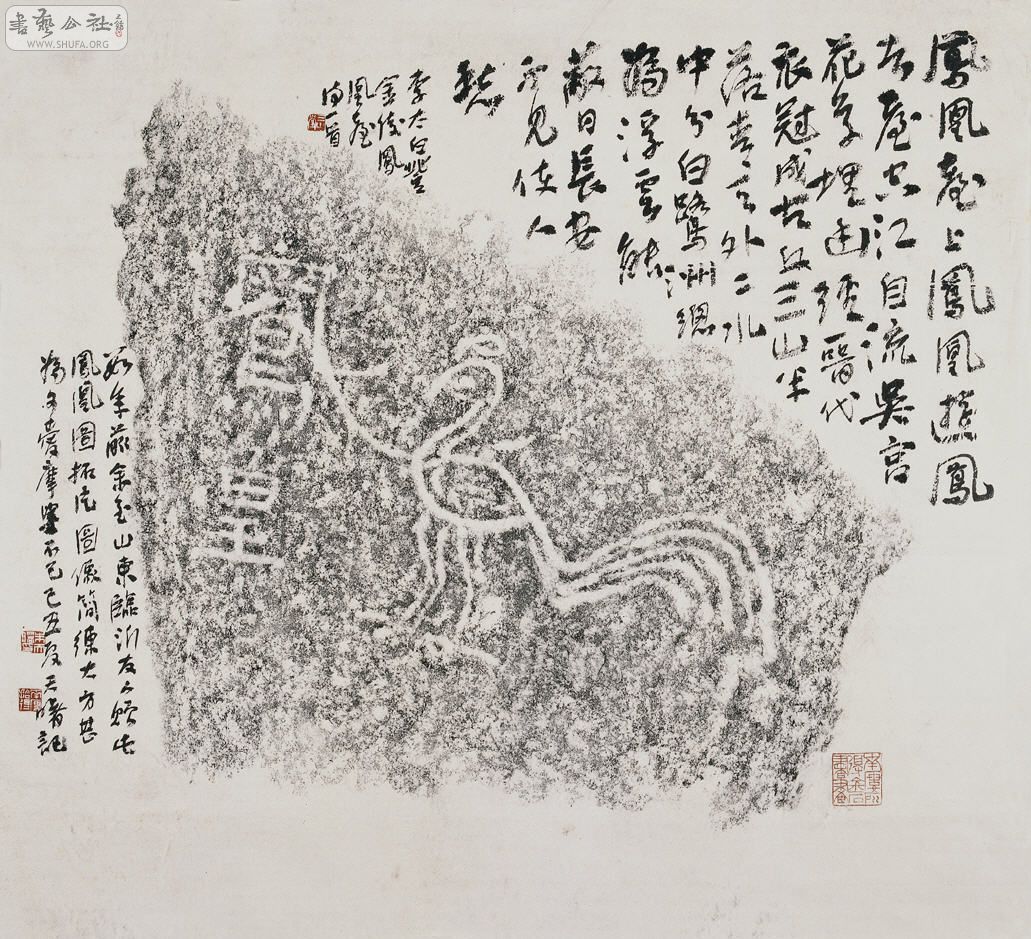 書藝公社
WWW.SHUFA.ORG
鳳凰臺上鳳凰遊鳳
去臺空江自流吳宮
花草埋幽徑晉代
衣冠成古丘三山半
落青天外二水
中分白鷺洲總
為浮雲能
蔽日長安
不見使人
愁
李太白登
金陵鳳
凰臺
詩一首
皇
年前余至山東臨沂友人贈此
鳳凰圖拓片圖像簡練大方甚
為可愛摩挲不已己丑夏天曙記